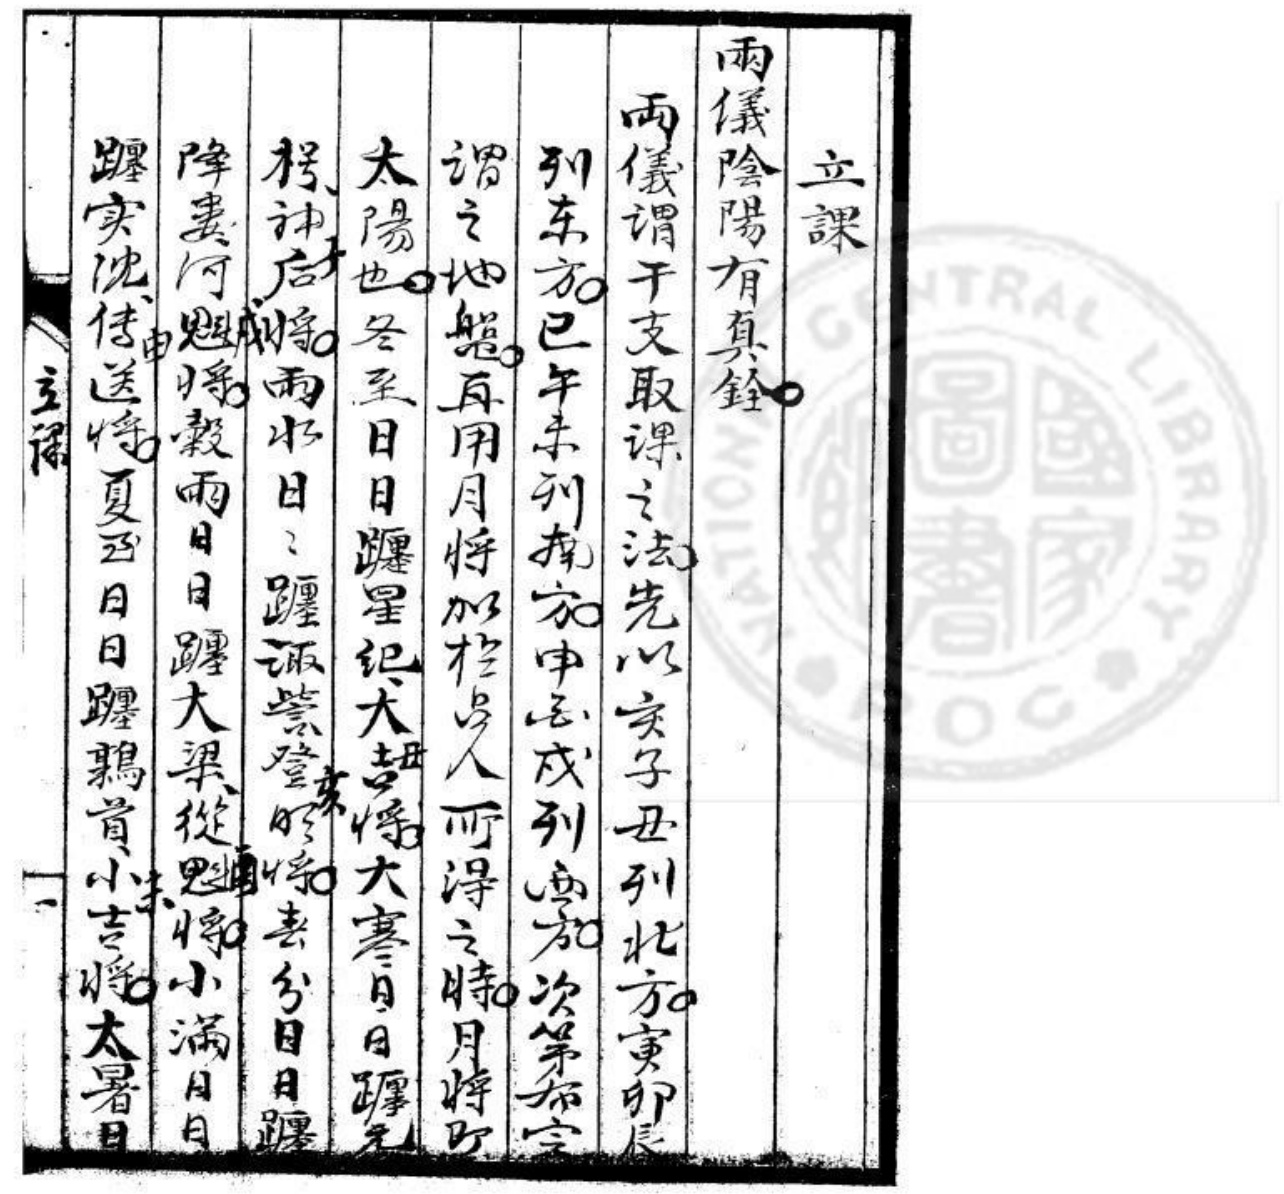 立課
兩儀陰陽有真銓
兩儀謂干支取課之法先以亥子丑列北方寅卯辰
列东方巳午未列南方申酉戌列西方次第布定
謂之地盤再用月将加於占人所得之時月將即
太陽也冬至日日躔星紀大吉丑将大寒日日躔元
枵神后子将雨水日〻躔诹訾登明亥将春分日日躔
降娄河魁戌将穀雨日日躔大梁從魁酉将小滿日日
躔实沈傳送申将夏至日日躔鶉首小吉未将大暑日
立課
一
NATIONAL CENTRAL LIBRARY
ROC
國家圖書